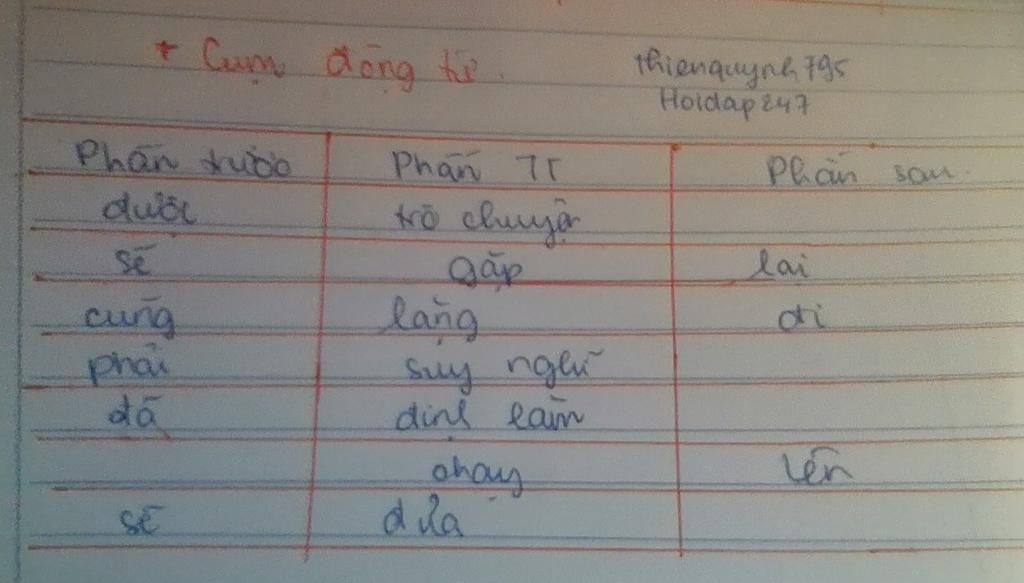 + Cụm động từ.
thienquynh795
Hoidap247
Phần trước Phần TT Phần sau
được trò chuyện
sẽ gặp lại
cũng lặng đi
phải suy nghĩ
đã định làm
chạy lên
sẽ đưa